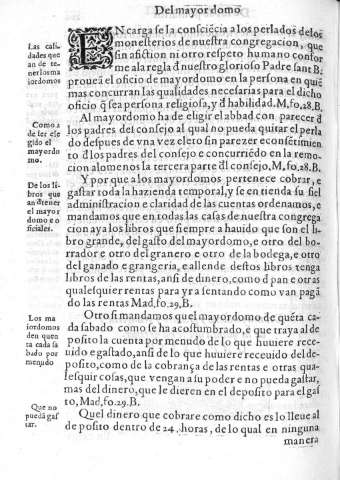 Del mayordomo
EN carga se la consciēcia a los perlados de los
monesterios de nuestra congregacion, que
sin afictiōn ni otro respeto humano confor
me ala regla đ nuestro glorioso Padre sant B.
prouea el oficio de mayordomo en la persona en quiē
mas concurran las qualidades necesarias para el dicho
oficio q̄ sea persona religiosa, y đ habilidad. M, fo, 28. B,
Las cali
dades que
an de te-
ner los ma
iordomos
Al mayordomo ha de eligir el abbad con parecer đ
los padres del consejo al qual no pueda quitar el perla
do despues de vna vez eleto sin parezer e consētimiēn
to đ los padres del consejo e concurriēdo en la remo-
cion alomenos la tercera parte đl consejo, M, fo, 28. B.
Como a
de ser ele
gido el
mayordo
mo.
Y por que a los mayordomos pertenece cobrar, e
gastar toda la hazienda temporal, y se en tienda su fiel
administracion e claridad de las cuentas ordenamos, e
mandamos que en todas las casas de nuestra congrega
cion aya los libros que siempre a hauido que son el li-
bro grande, del gasto del mayordomo, e otro del bo-
rrador e otro del granero e otro de la bodega, e otro
del ganado e grangeria, e allende destos libros tenga
libros de las rentas, ansi de dinero, como đ pan e otras
qualesquier rentas para yr asentando como van pagā
do las rentas Mad, fo, 29, B.
De los li-
bros que
an đ tener
el mayor
domo e o
ficiales.
Otro si mandamos quel mayordomo de quēta ca-
da sabado como se ha acostumbrado, e que traya al de
posito la cuenta por menudo de lo que huuiere rece-
uido e gastado, ansi de lo que huuiere receuido del de-
posito, como de la cobrança de las rentas e otras qua-
lesquir cosas, que vengan a su poder e no pueda gastar,
mas del dinero, que le dieren en el deposito para el gas
to, Mad, fo. 29. B.
Los ma
iordomos
den quen
ta cada sa
bado por
menudo
Quel dinero que cobrare como dicho es lo lleue al
de posito dentro de 24, horas, de lo qual en ninguna
manera
Que no
pueda gas
tar.